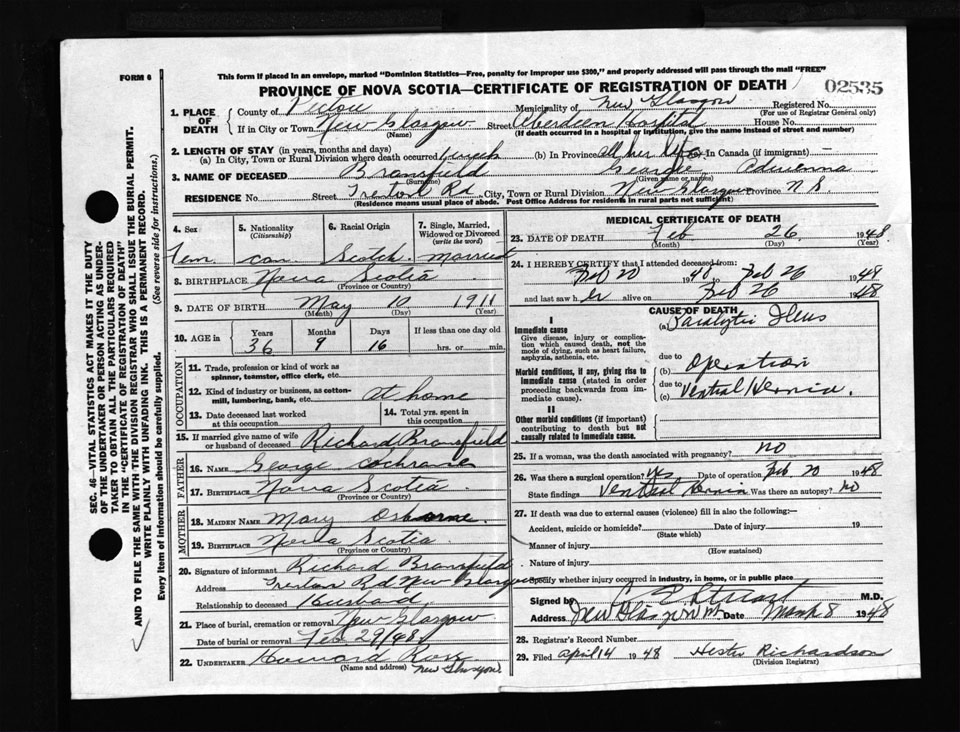 FORM 6
This form if placed in an envelope, marked "Dominion Statistics—Free, penalty for improper use $300," and properly addressed will pass through the mail "FREE"
PROVINCE OF NOVA SCOTIA—CERTIFICATE OF REGISTRATION OF DEATH
02535
1. PLACE OF DEATH County of Pictou Municipality of New Glasgow Registered No.
(For use of Registrar General only)
If in City or Town New Glasgow Street Aberdeen Hospital House No.
(Name) (If death occurred in a hospital or institution, give the name instead of street and number)
2. LENGTH OF STAY (in years, months and days)
(a) In City, Town or Rural Division where death occurred 1 week (b) In Province all her life (c) In Canada (if immigrant) —
3. NAME OF DECEASED Bransfield George Adrienna
(Surname) (Given name or names)
RESIDENCE No. Street Trenton Rd City, Town or Rural Division New Glasgow Province N.S
(Residence means usual place of abode. Post Office Address for residents in rural parts not sufficient)
4. Sex 5. Nationality (Citizenship) 6. Racial Origin 7. Single, Married, Widowed or Divorced (write the word)
Fem can. Scotch married
8. BIRTHPLACE Nova Scotia
(Province or Country)
9. DATE OF BIRTH May 10 1911
(Month) (Day) (Year)
10. AGE in Years Months Days If less than one day old
36 9 16 hrs. or min.
OCCUPATION
11. Trade, profession or kind of work as spinner, teamster, office clerk, etc.
12. Kind of industry or business, as cotton-mill, lumbering, bank, etc. at home
13. Date deceased last worked at this occupation 14. Total yrs. spent in this occupation
15. If married give name of wife or husband of deceased Richard Bransfield
FATHER
16. NAME George Cochrane
17. BIRTHPLACE Nova Scotia
(Province or Country)
MOTHER
18. MAIDEN NAME Mary Osborne.
19. BIRTHPLACE Nova Scotia
(Province or Country)
20. Signature of informant Richard Bransfield
Address Trenton Rd New Glasgow
Relationship to deceased Husband
21. Place of burial, cremation or removal New Glasgow
Date of burial or removal Feb 29/48
22. UNDERTAKER Howard Ross
(Name and address) New Glasgow
MEDICAL CERTIFICATE OF DEATH
23. DATE OF DEATH Feb 26 1948
(Month) (Day) (Year)
24. I HEREBY CERTIFY that I attended deceased from:
Feb 20 1948 to Feb 26 1948
and last saw h er alive on Feb 26 1948
CAUSE OF DEATH
I
Immediate cause (a) Paralytic Ileus
Give disease, injury or complication which caused death, not the mode of dying, such as heart failure, asphyxia, asthenia, etc.
due to
Morbid conditions, if any, giving rise to immediate cause (stated in order proceeding backwards from immediate cause). (b) Operation
due to
(c) Ventral Hernia.
II
Other morbid conditions (if important) contributing to death but not causally related to immediate cause.
25. If a woman, was the death associated with pregnancy? no
26. Was there a surgical operation? yes Date of operation Feb 20 1948
State findings Ventral Hernia Was there an autopsy? no
27. If death was due to external causes (violence) fill in also the following:—
Accident, suicide or homicide? Date of injury 19
(State which)
Manner of injury
(How sustained)
Nature of injury
Specify whether injury occurred in industry, in home, or in public place
Signed by Stuart M.D.
Address New Glasgow Date March 8 1948
28. Registrar's Record Number
29. Filed April 14 1948 Hester Richardson
(Division Registrar)
SEC. 46—VITAL STATISTICS ACT MAKES IT THE DUTY
OF THE UNDERTAKER OR PERSON ACTING AS UNDER-
TAKER TO OBTAIN ALL THE PARTICULARS REQUIRED
IN THE "CERTIFICATE OF REGISTRATION OF DEATH"
AND TO FILE THE SAME WITH THE DIVISION REGISTRAR WHO SHALL ISSUE THE BURIAL PERMIT.
WRITE PLAINLY WITH UNFADING INK. THIS IS A PERMANENT RECORD.
Every item of information should be carefully supplied. (See reverse side for instructions.)